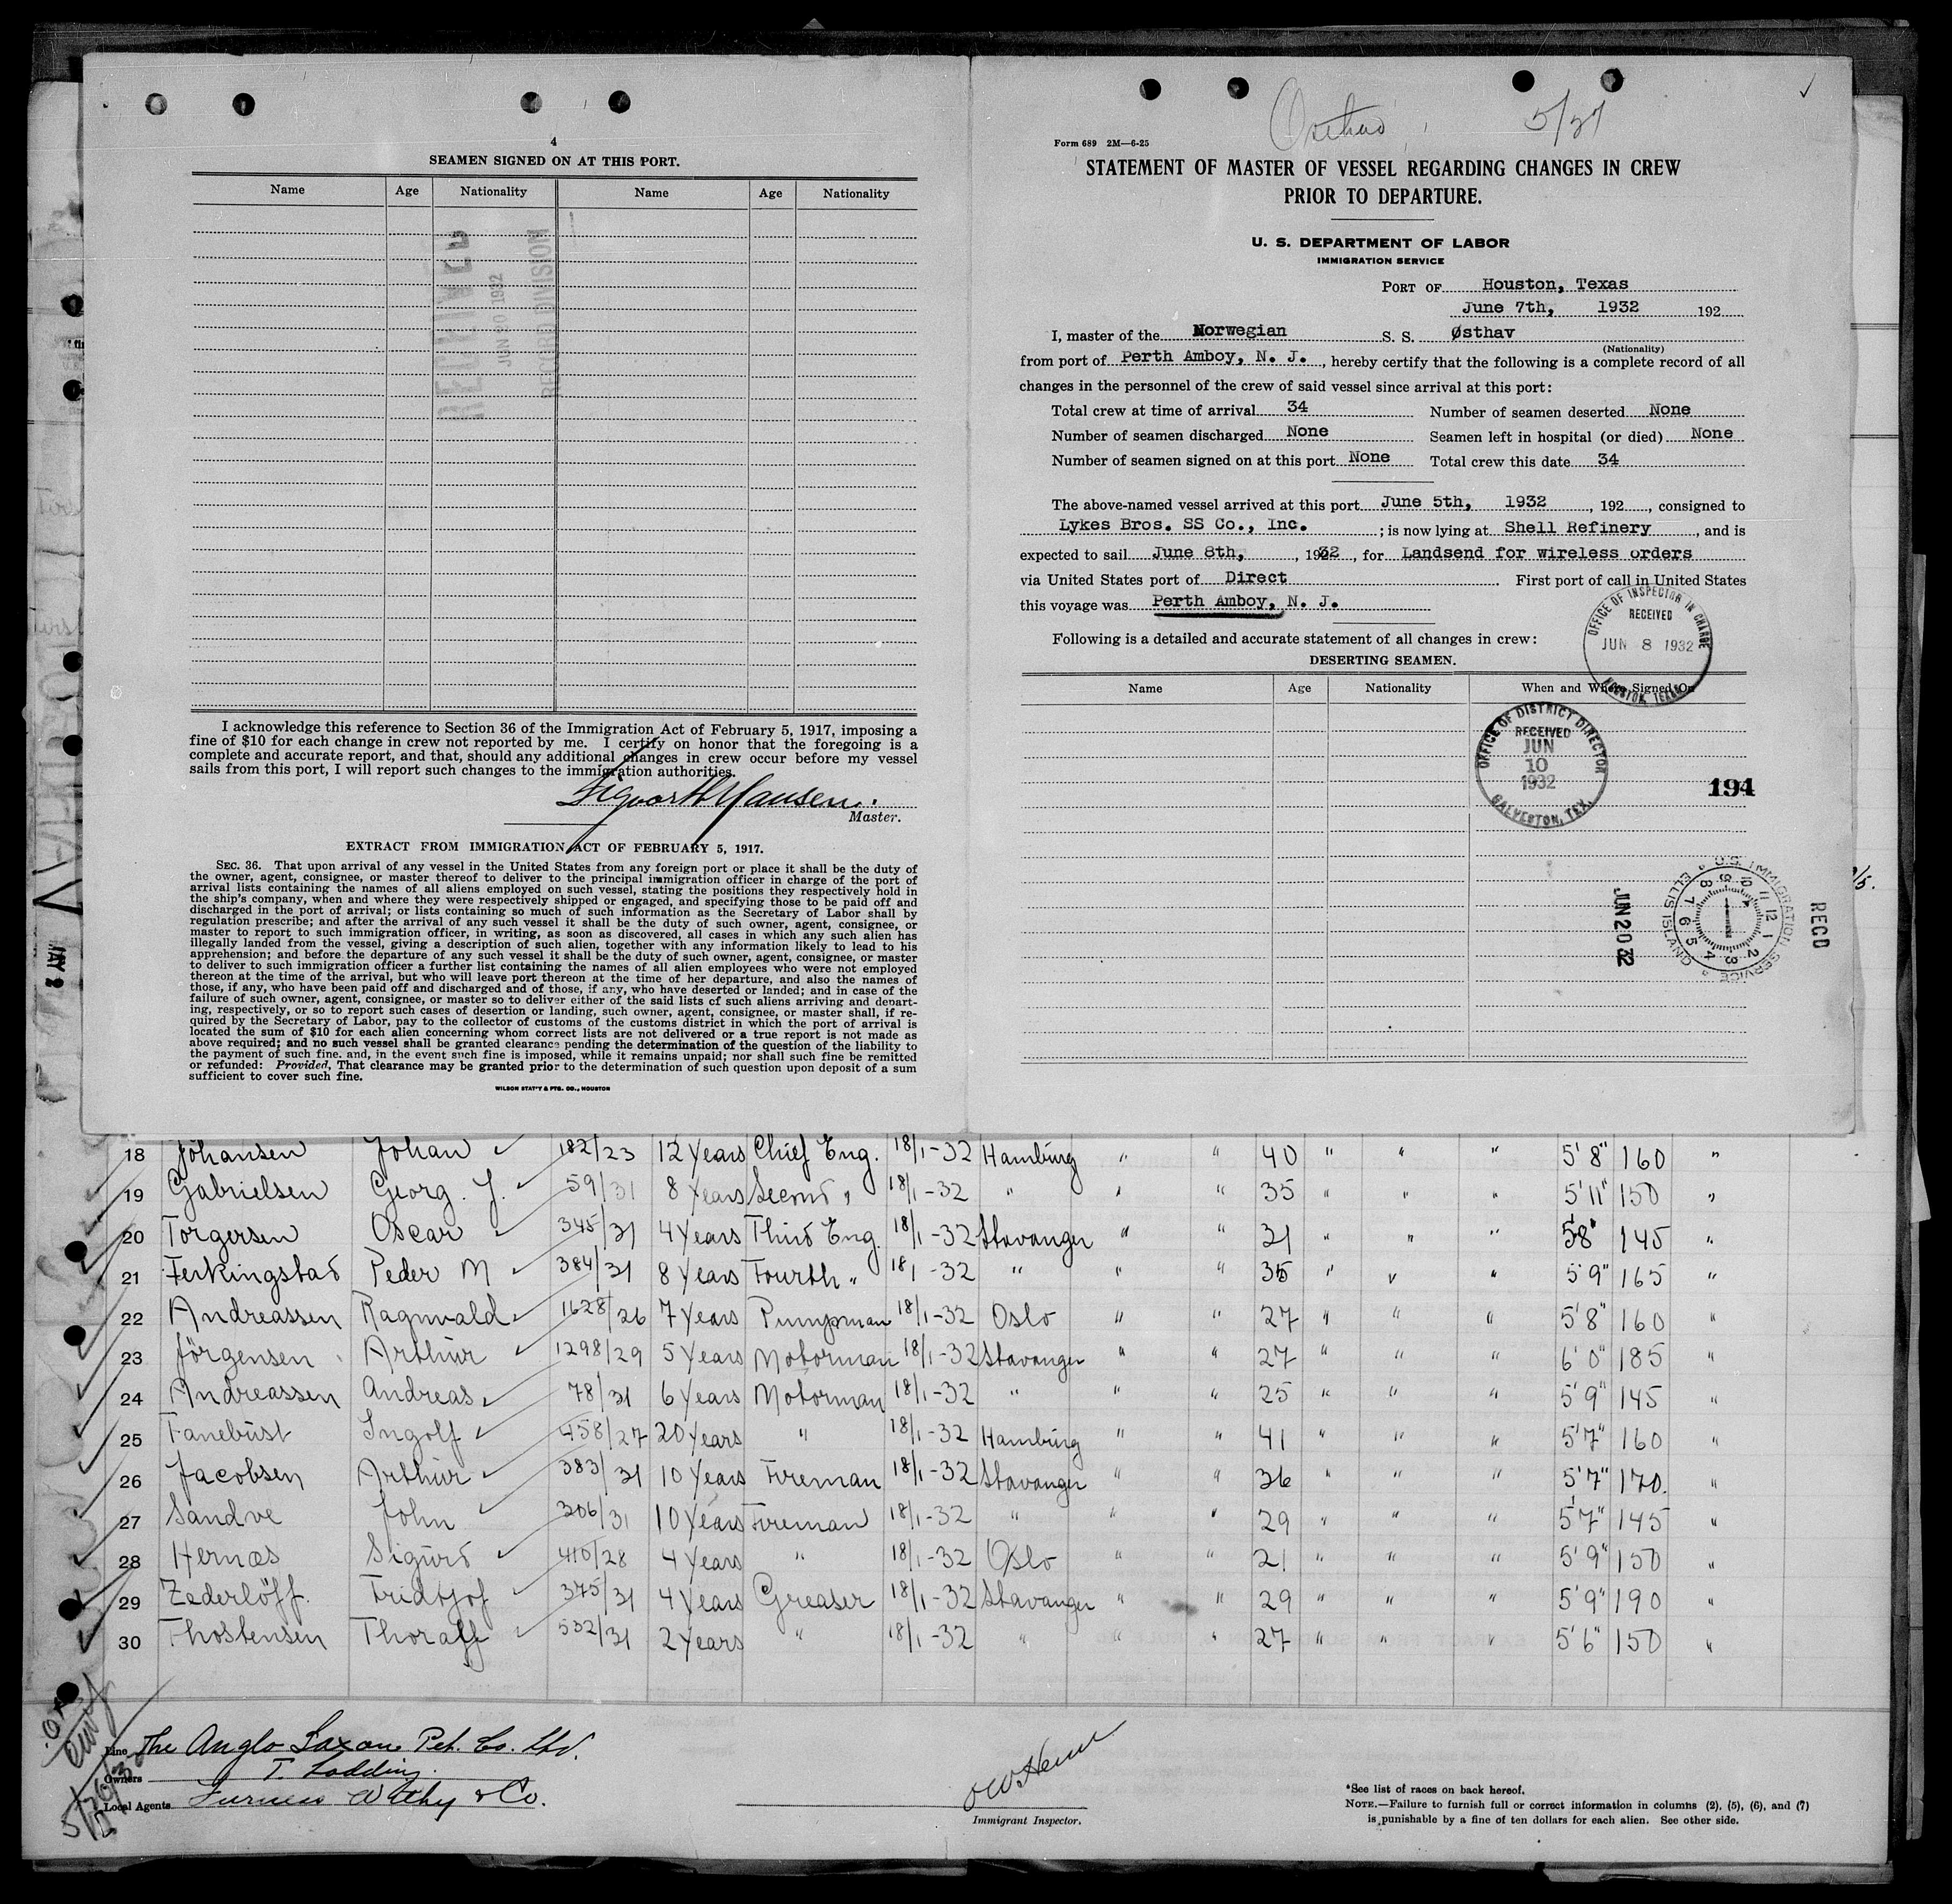 4
SEAMEN SIGNED ON AT THIS PORT.
Name Age Nationality Name Age Nationality
RECEIVED
JUN 20 1932
RECORD DIVISION
I acknowledge this reference to Section 36 of the Immigration Act of February 5, 1917, imposing a
fine of $10 for each change in crew not reported by me. I certify on honor that the foregoing is a
complete and accurate report, and that, should any additional changes in crew occur before my vessel
sails from this port, I will report such changes to the immigration authorities.
Sigvart Hansen.
Master.
EXTRACT FROM IMMIGRATION ACT OF FEBRUARY 5, 1917.
SEC. 36. That upon arrival of any vessel in the United States from any foreign port or place it shall be the duty of
the owner, agent, consignee, or master thereof to deliver to the principal immigration officer in charge of the port of
arrival lists containing the names of all aliens employed on such vessel, stating the positions they respectively hold in
the ship's company, when and where they were respectively shipped or engaged, and specifying those to be paid off and
discharged in the port of arrival; or lists containing so much of such information as the Secretary of Labor shall by
regulation prescribe; and after the arrival of any such vessel it shall be the duty of such owner, agent, consignee, or
master to report to such immigration officer, in writing, as soon as discovered, all cases in which any such alien has
illegally landed from the vessel, giving a description of such alien, together with any information likely to lead to his
apprehension; and before the departure of any such vessel it shall be the duty of such owner, agent, consignee, or master
to deliver to such immigration officer a further list containing the names of all alien employees who were not employed
thereon at the time of the arrival, but who will leave port thereon at the time of her departure, and also the names of
those, if any, who have been paid off and discharged and of those, if any, who have deserted or landed; and in case of the
failure of such owner, agent, consignee, or master so to deliver either of the said lists of such aliens arriving and depart-
ing, respectively, or so to report such cases of desertion or landing, such owner, agent, consignee, or master shall, if re-
quired by the Secretary of Labor, pay to the collector of customs of the customs district in which the port of arrival is
located the sum of $10 for each alien concerning whom correct lists are not delivered or a true report is not made as
above required; and no such vessel shall be granted clearance pending the determination of the question of the liability to
the payment of such fine. and, in the event such fine is imposed, while it remains unpaid; nor shall such fine be remitted
or refunded: Provided, That clearance may be granted prior to the determination of such question upon deposit of a sum
sufficient to cover such fine.
WILSON STAT'Y & PTG. CO., HOUSTON
Osthav 5/27
Form 689 2M—6-25
STATEMENT OF MASTER OF VESSEL REGARDING CHANGES IN CREW
PRIOR TO DEPARTURE.
U. S. DEPARTMENT OF LABOR
IMMIGRATION SERVICE
PORT OF Houston, Texas
June 7th, 1932 192
I, master of the Norwegian S. S. Østhav
(Nationality)
from port of Perth Amboy, N. J. , hereby certify that the following is a complete record of all
changes in the personnel of the crew of said vessel since arrival at this port:
Total crew at time of arrival 34 Number of seamen deserted None
Number of seamen discharged None Seamen left in hospital (or died) None
Number of seamen signed on at this port None Total crew this date 34
The above-named vessel arrived at this port June 5th, 1932 , 192 , consigned to
Lykes Bros. SS Co., Inc. ; is now lying at Shell Refinery , and is
expected to sail June 8th, , 1932 , for Landsend for wireless orders
via United States port of Direct . First port of call in United States
this voyage was Perth Amboy, N. J.
OFFICE OF INSPECTOR IN CHARGE
RECEIVED
JUN 8 1932
HOUSTON, TEXAS
Following is a detailed and accurate statement of all changes in crew:
DESERTING SEAMEN.
Name Age Nationality When and Where Signed On
OFFICE OF DISTRICT DIRECTOR
RECEIVED
JUN
10
1932
GALVESTON, TEX.
194
JUN 20 32
U.S. IMMIGRATION SERVICE
ELLIS ISLAND
RECD
18 Johansen Johan 182/23 12 Years Chief Eng. 18/1-32 Hamburg " " 40 " " " 5'8" 160 "
19 Gabrielsen Georg. J. 59/31 8 Years Second " 18/1-32 " " " 35 " " " 5'11" 150 "
20 Torgersen Oscar 345/31 4 Years Third Eng. 18/1-32 Stavanger " " 31 " " " 5'8" 145 "
21 Ferkingstad Peder M 384/31 8 Years Fourth " 18/1-32 " " " 35 " " " 5'9" 165 "
22 Andreassen Ragnvald 1628/26 7 Years Pumpman 18/1-32 Oslo " " 27 " " " 5'8" 160 "
23 Jörgensen Arthur 1298/29 5 Years Motorman 18/1-32 Stavanger " " 27 " " " 6'0" 185 "
24 Andreassen Andreas 78/31 6 Years Motorman 18/1-32 " " " 25 " " " 5'9" 145 "
25 Fanebust Ingolf 458/27 20 Years " 18/1-32 Hamburg " " 41 " " " 5'7" 160 "
26 Jacobsen Arthur 383/31 10 Years Fireman 18/1-32 Stavanger " " 26 " " " 5'7" 170. "
27 Sandve John 206/31 10 Years Fireman 18/1-32 " " " 29 " " " 5'7" 145 "
28 Hernæs Sigurd 410/28 4 Years " 18/1-32 Oslo " " 21 " " " 5'9" 150 "
29 Zederlöff. Fridtjof 375/31 4 Years Greaser 18/1-32 Stavanger " " 29 " " " 5'9" 190 "
30 Thostensen Thoralf 532/31 2 Years " 18/1-32 " " " 27 " " " 5'6" 150 "
Line The Anglo Saxon Pet. Co. Ltd.
Owners T. Lodding.
Local Agents Furness Withy & Co.
Immigrant Inspector.
*See list of races on back hereof.
NOTE.—Failure to furnish full or correct information in columns (2), (5), (6), and (7)
is punishable by a fine of ten dollars for each alien. See other side.